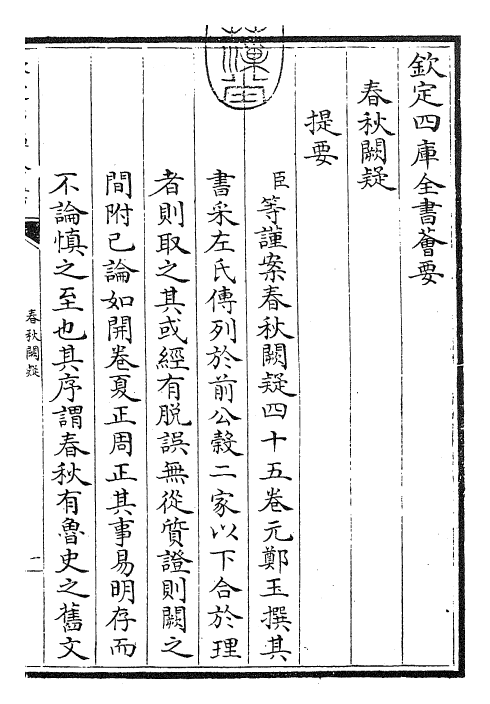 欽定四庫全書薈要
春秋闕疑
提要
臣等謹案春秋闕疑四十五卷元鄭玉撰其
書采左氏傳列於前公穀二家以下合於理
者則取之其或經有脱誤無從質證則闕之
間附己論如開卷夏正周正其事易明存而
不論慎之至也其序謂春秋有魯史之舊文
春秋闕疑
一